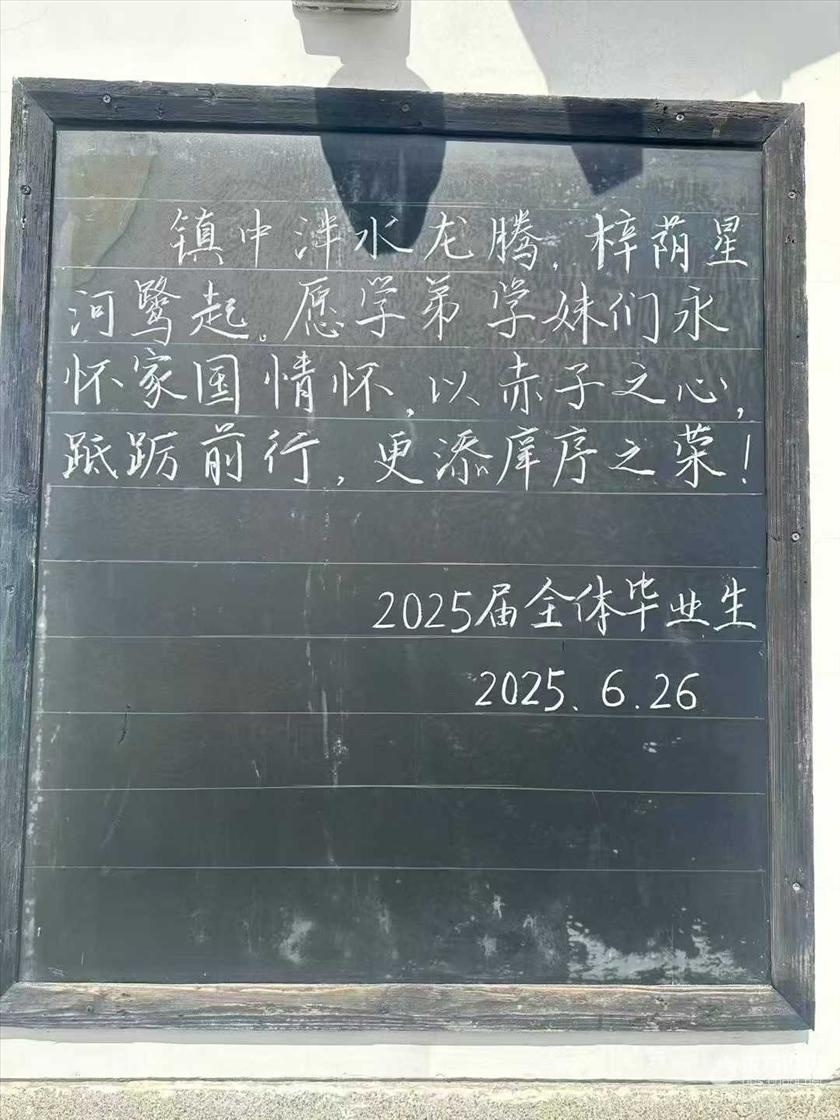 镇中泮水龙腾，梓荫星
河鹭起。愿学弟学妹们永
怀家国情怀，以赤子之心，
砥砺前行，更添庠序之荣！
2025届全体毕业生
2025.6.26